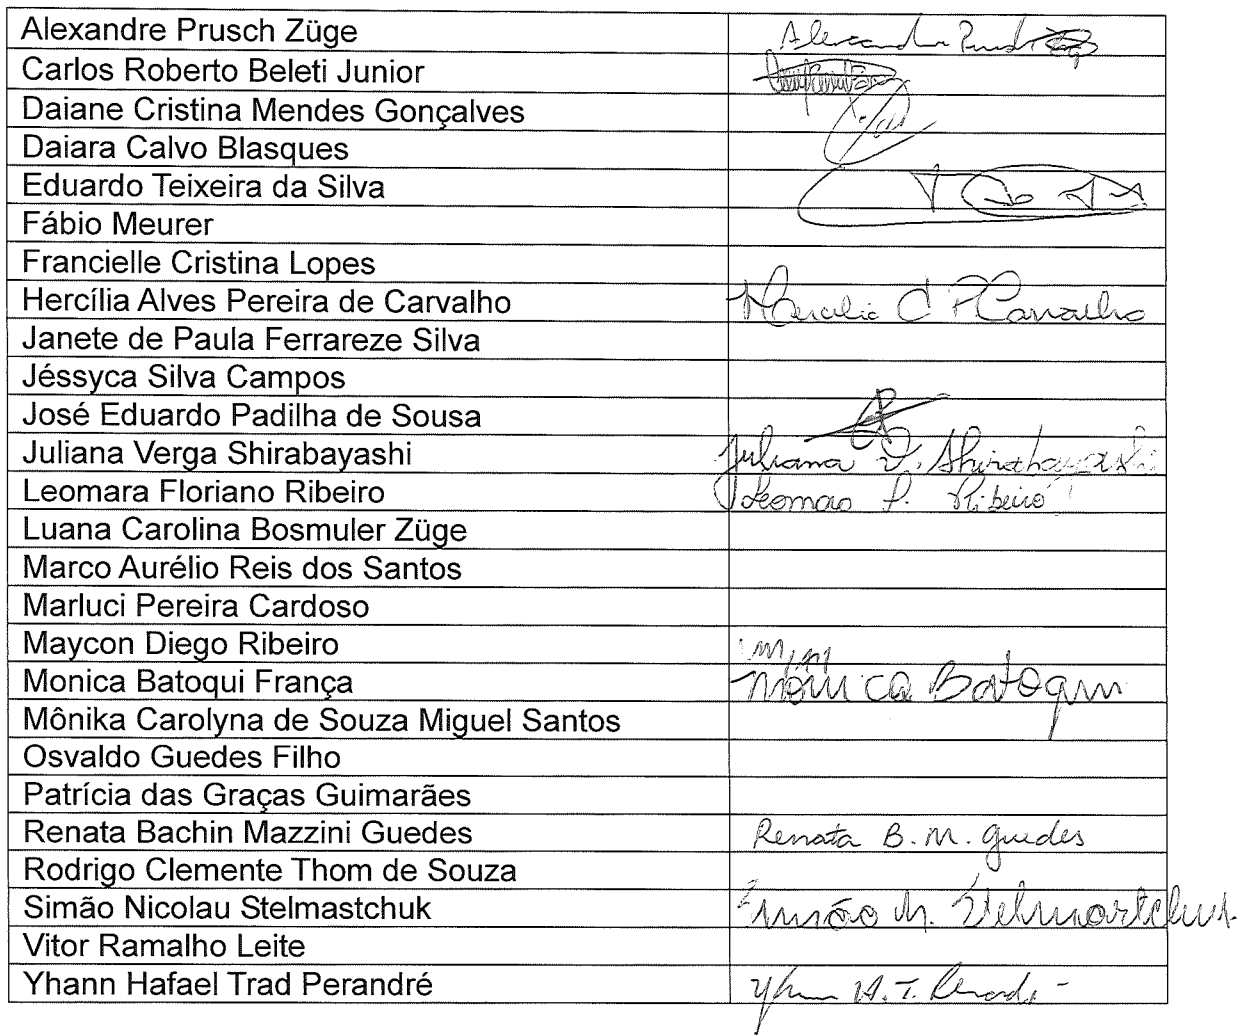 Alexandre Prusch Züge Alexandre Prusch
Carlos Roberto Beleti Junior
Daiane Cristina Mendes Gonçalves
Daiara Calvo Blasques
Eduardo Teixeira da Silva
Fábio Meurer
Francielle Cristina Lopes
Hercília Alves Pereira de Carvalho Hercilia C P Carvalho
Janete de Paula Ferrareze Silva
Jéssyca Silva Campos
José Eduardo Padilha de Sousa
Juliana Verga Shirabayashi Juliana V. Shirabayashi
Leomara Floriano Ribeiro Leomara F. Ribeiro
Luana Carolina Bosmuler Züge
Marco Aurélio Reis dos Santos
Marluci Pereira Cardoso
Maycon Diego Ribeiro
Monica Batoqui França Monica Batoqui
Mônika Carolyna de Souza Miguel Santos
Osvaldo Guedes Filho
Patrícia das Graças Guimarães
Renata Bachin Mazzini Guedes Renata B. M. Guedes
Rodrigo Clemente Thom de Souza
Simão Nicolau Stelmastchuk Simão N. Stelmastchuk
Vitor Ramalho Leite
Yhann Hafael Trad Perandré Yhann H. T. Perandré